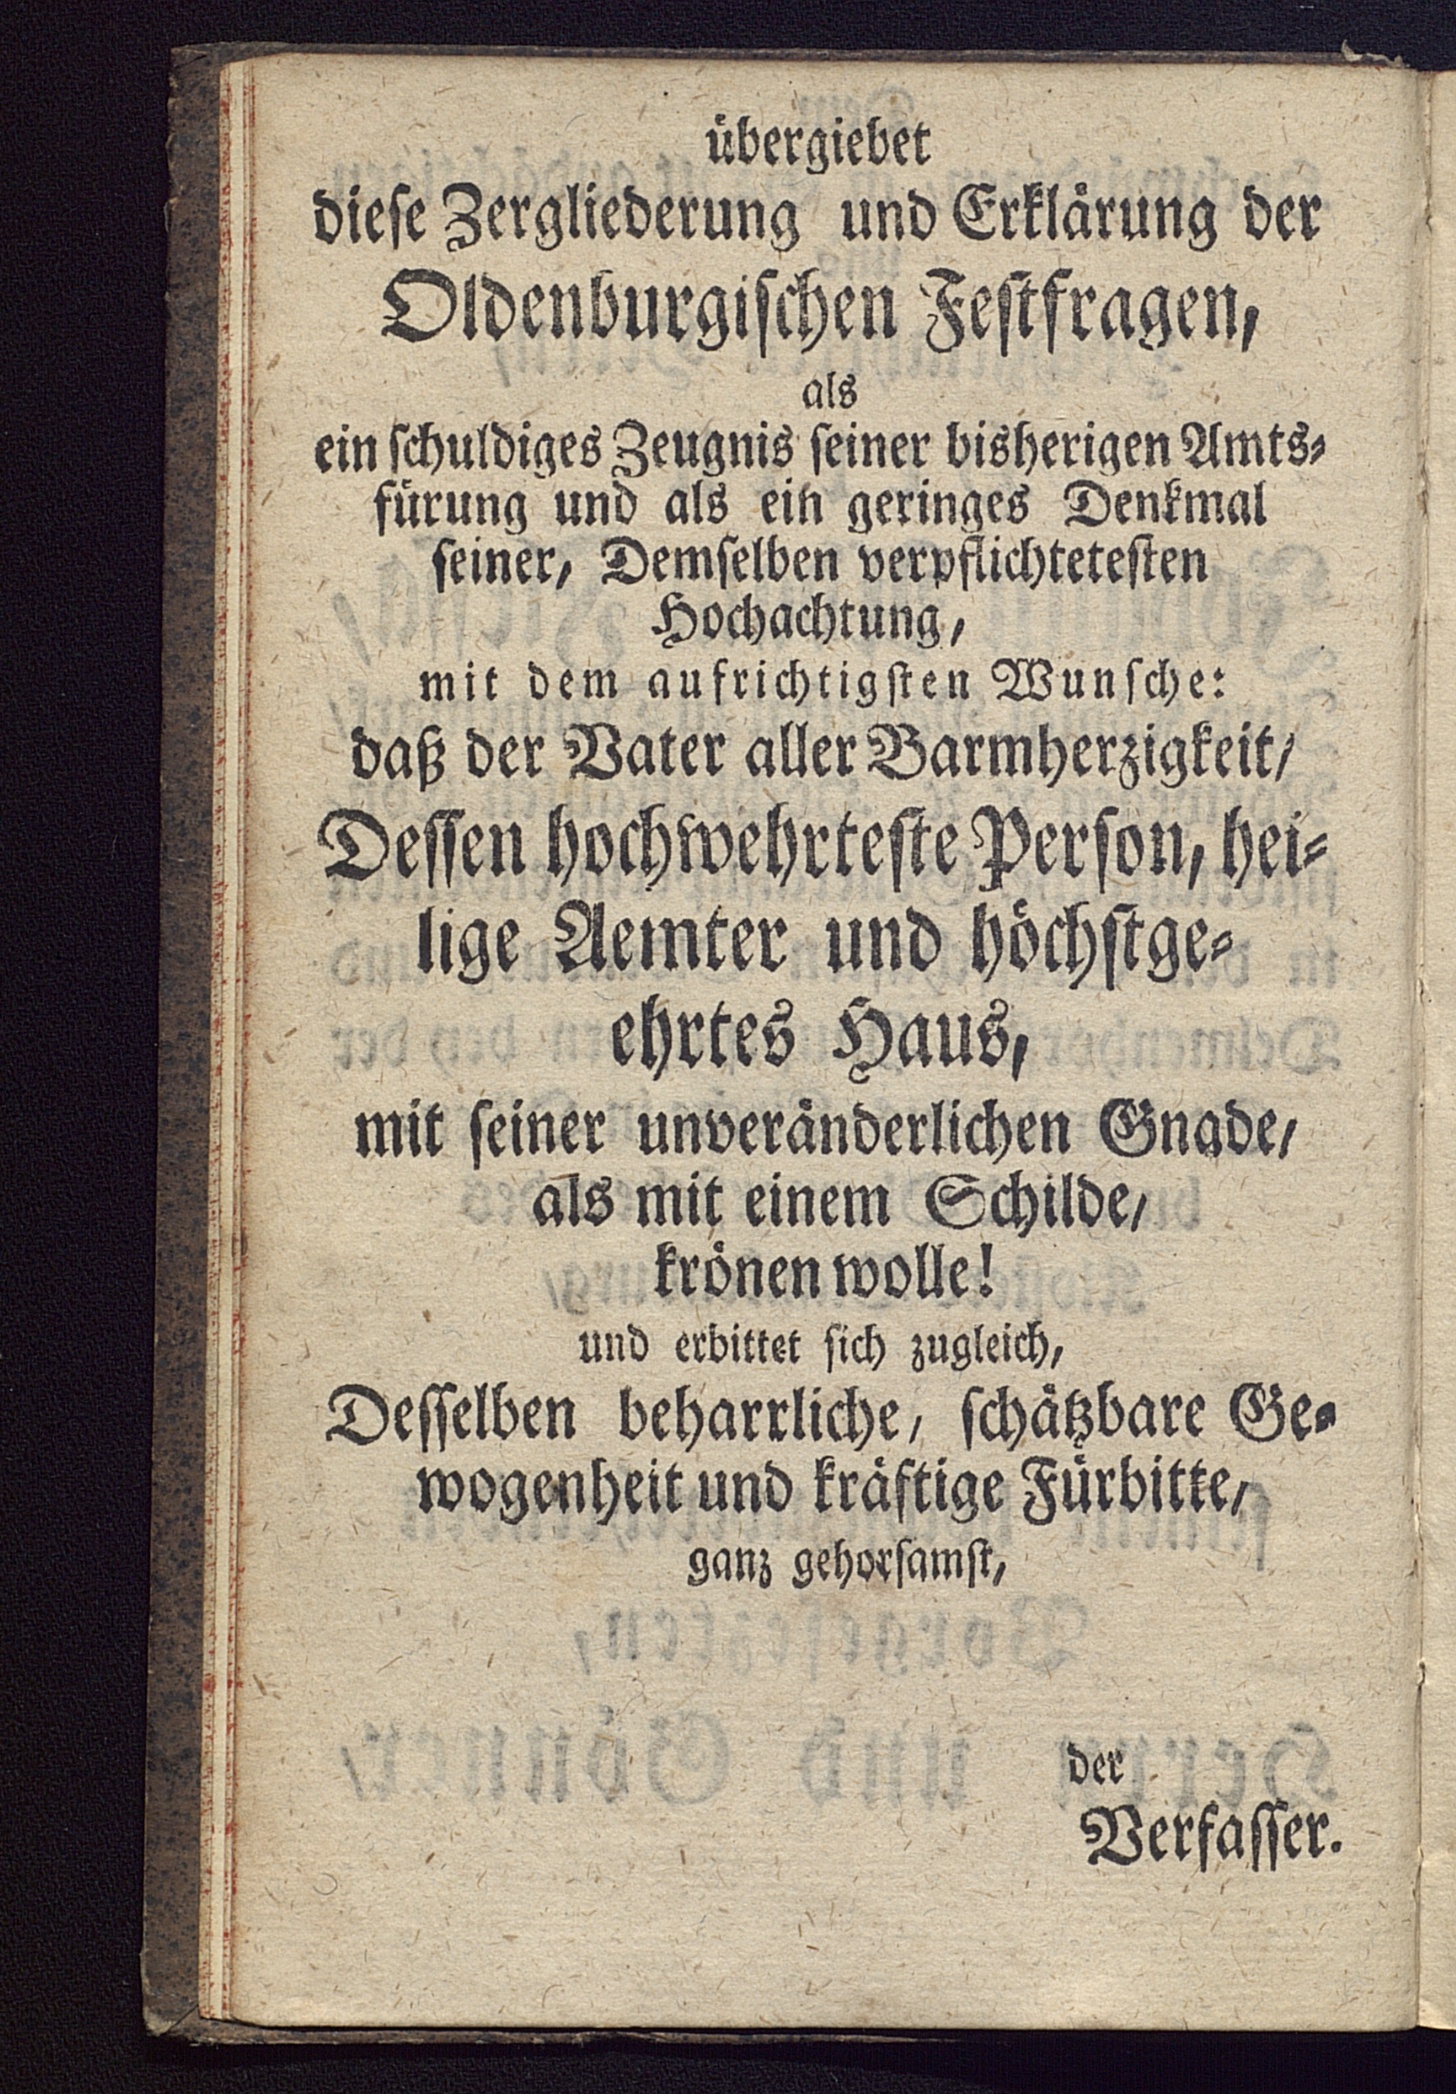 übergiebet
dieſe Zergliederung und Erklärung der
Oldenburgiſchen Feſtfragen,
als
ein ſchuldiges Zeugnis ſeiner bisherigen Amts⸗
fürung und als ein geringes Denkmal
ſeiner, Demſelben verpflichteteſten
Hochachtung,
mit dem aufrichtigſten Wunſche:
daß der Vater aller Barmherzigkeit/
Deſſen hochwehrteſte Perſon, hei⸗
lige Aemter und höchſtge⸗
ehrtes Haus,
mit ſeiner unveränderlichen Gnade/
als mit einem Schilde/
krönen wolle!
und erbittet ſich zugleich,
Deſſelben beharrliche, ſchätzbare Ge⸗
wogenheit und kräftige Fürbitte/
ganz gehorſamſt,
der
Verfaſſer.